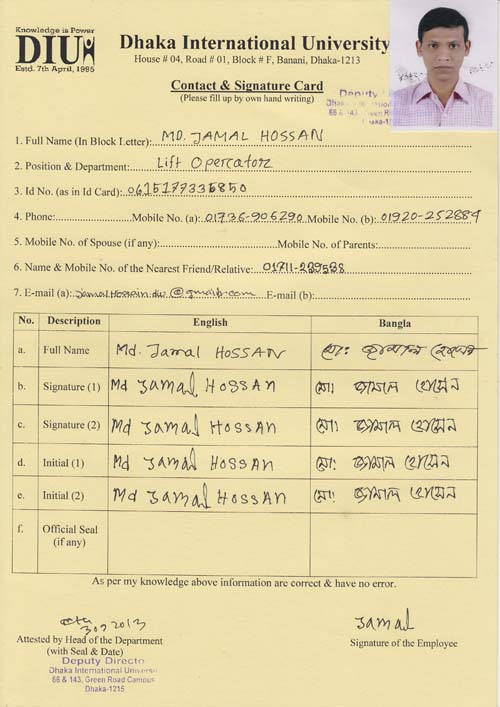 Knowledge is Power
DIU
Estd. 7th April, 1995
Dhaka International University
House # 04, Road # 01, Block # F, Banani, Dhaka-1213
Contact & Signature Card
(Please fill up by own hand writing)
Deputy Di
Dhaka Internationa
66 & 143, Green Road
Dhaka-1
1. Full Name (In Block Letter): MD. JAMAL HOSSAN
2. Position & Department: Lift Opercator
3. Id No. (as in Id Card): 0615177335850
4. Phone: Mobile No. (a): 01736-906290 Mobile No. (b): 01920-252884
5. Mobile No. of Spouse (if any): Mobile No. of Parents:
6. Name & Mobile No. of the Nearest Friend/Relative: 01711-289588
7. E-mail (a): Jamal.Hossain.diu@gmail.com E-mail (b):
No. Description English Bangla
a. Full Name Md. Jamal HOSSAN মো: জামাল হোসেন
b. Signature (1) Md Jamal HOSSAN মো: জামাল হোসেন
c. Signature (2) Md Jamal HOSSAN মো: জামাল হোসেন
d. Initial (1) Md Jamal HOSSAN মো: জামাল হোসেন
e. Initial (2) Md Jamal HOSSAN মো: জামাল হোসেন
f. Official Seal
(if any)
As per my knowledge above information are correct & have no error.
2013 Jamal
Attested by Head of the Department Signature of the Employee
(with Seal & Date)
Deputy Directo
Dhaka International Universi
66 & 143, Green Road Campus
Dhaka-1215